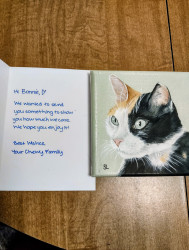 Hi Bonnie, ♡
We wanted to send
you something to show
you how much we care.
We hope you enjoy it!
Best Wishes,
Your Chewy Family